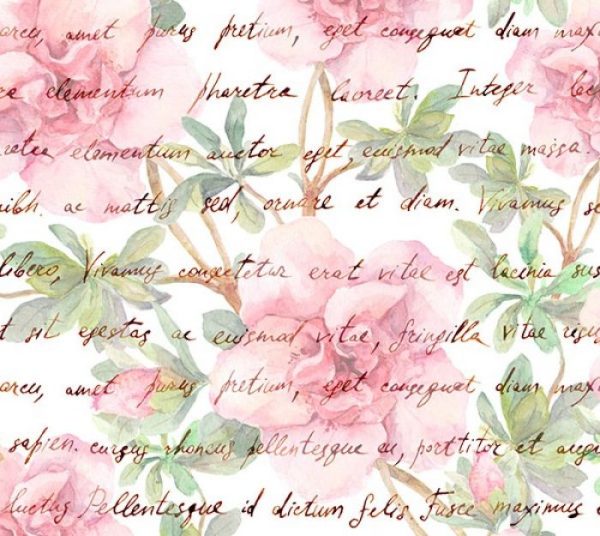 arcu, amet purus pretium, eget consequat diam
elementum pharetra laoreet. Integer
elementum auctor eget, euismod vitae massa.
nibh. ac mattis sed, ornare et diam. Vivamus
libero, Vivamus consectetur erat vitae est lacinia
sit egestas ac euismod vitae, fringilla vitae
arcu, amet purus pretium, eget consequat diam
sapien. cursus rhoncus pellentesque eu, porttitor et
luctus Pellentesque id dictum felis. Fusce maximus